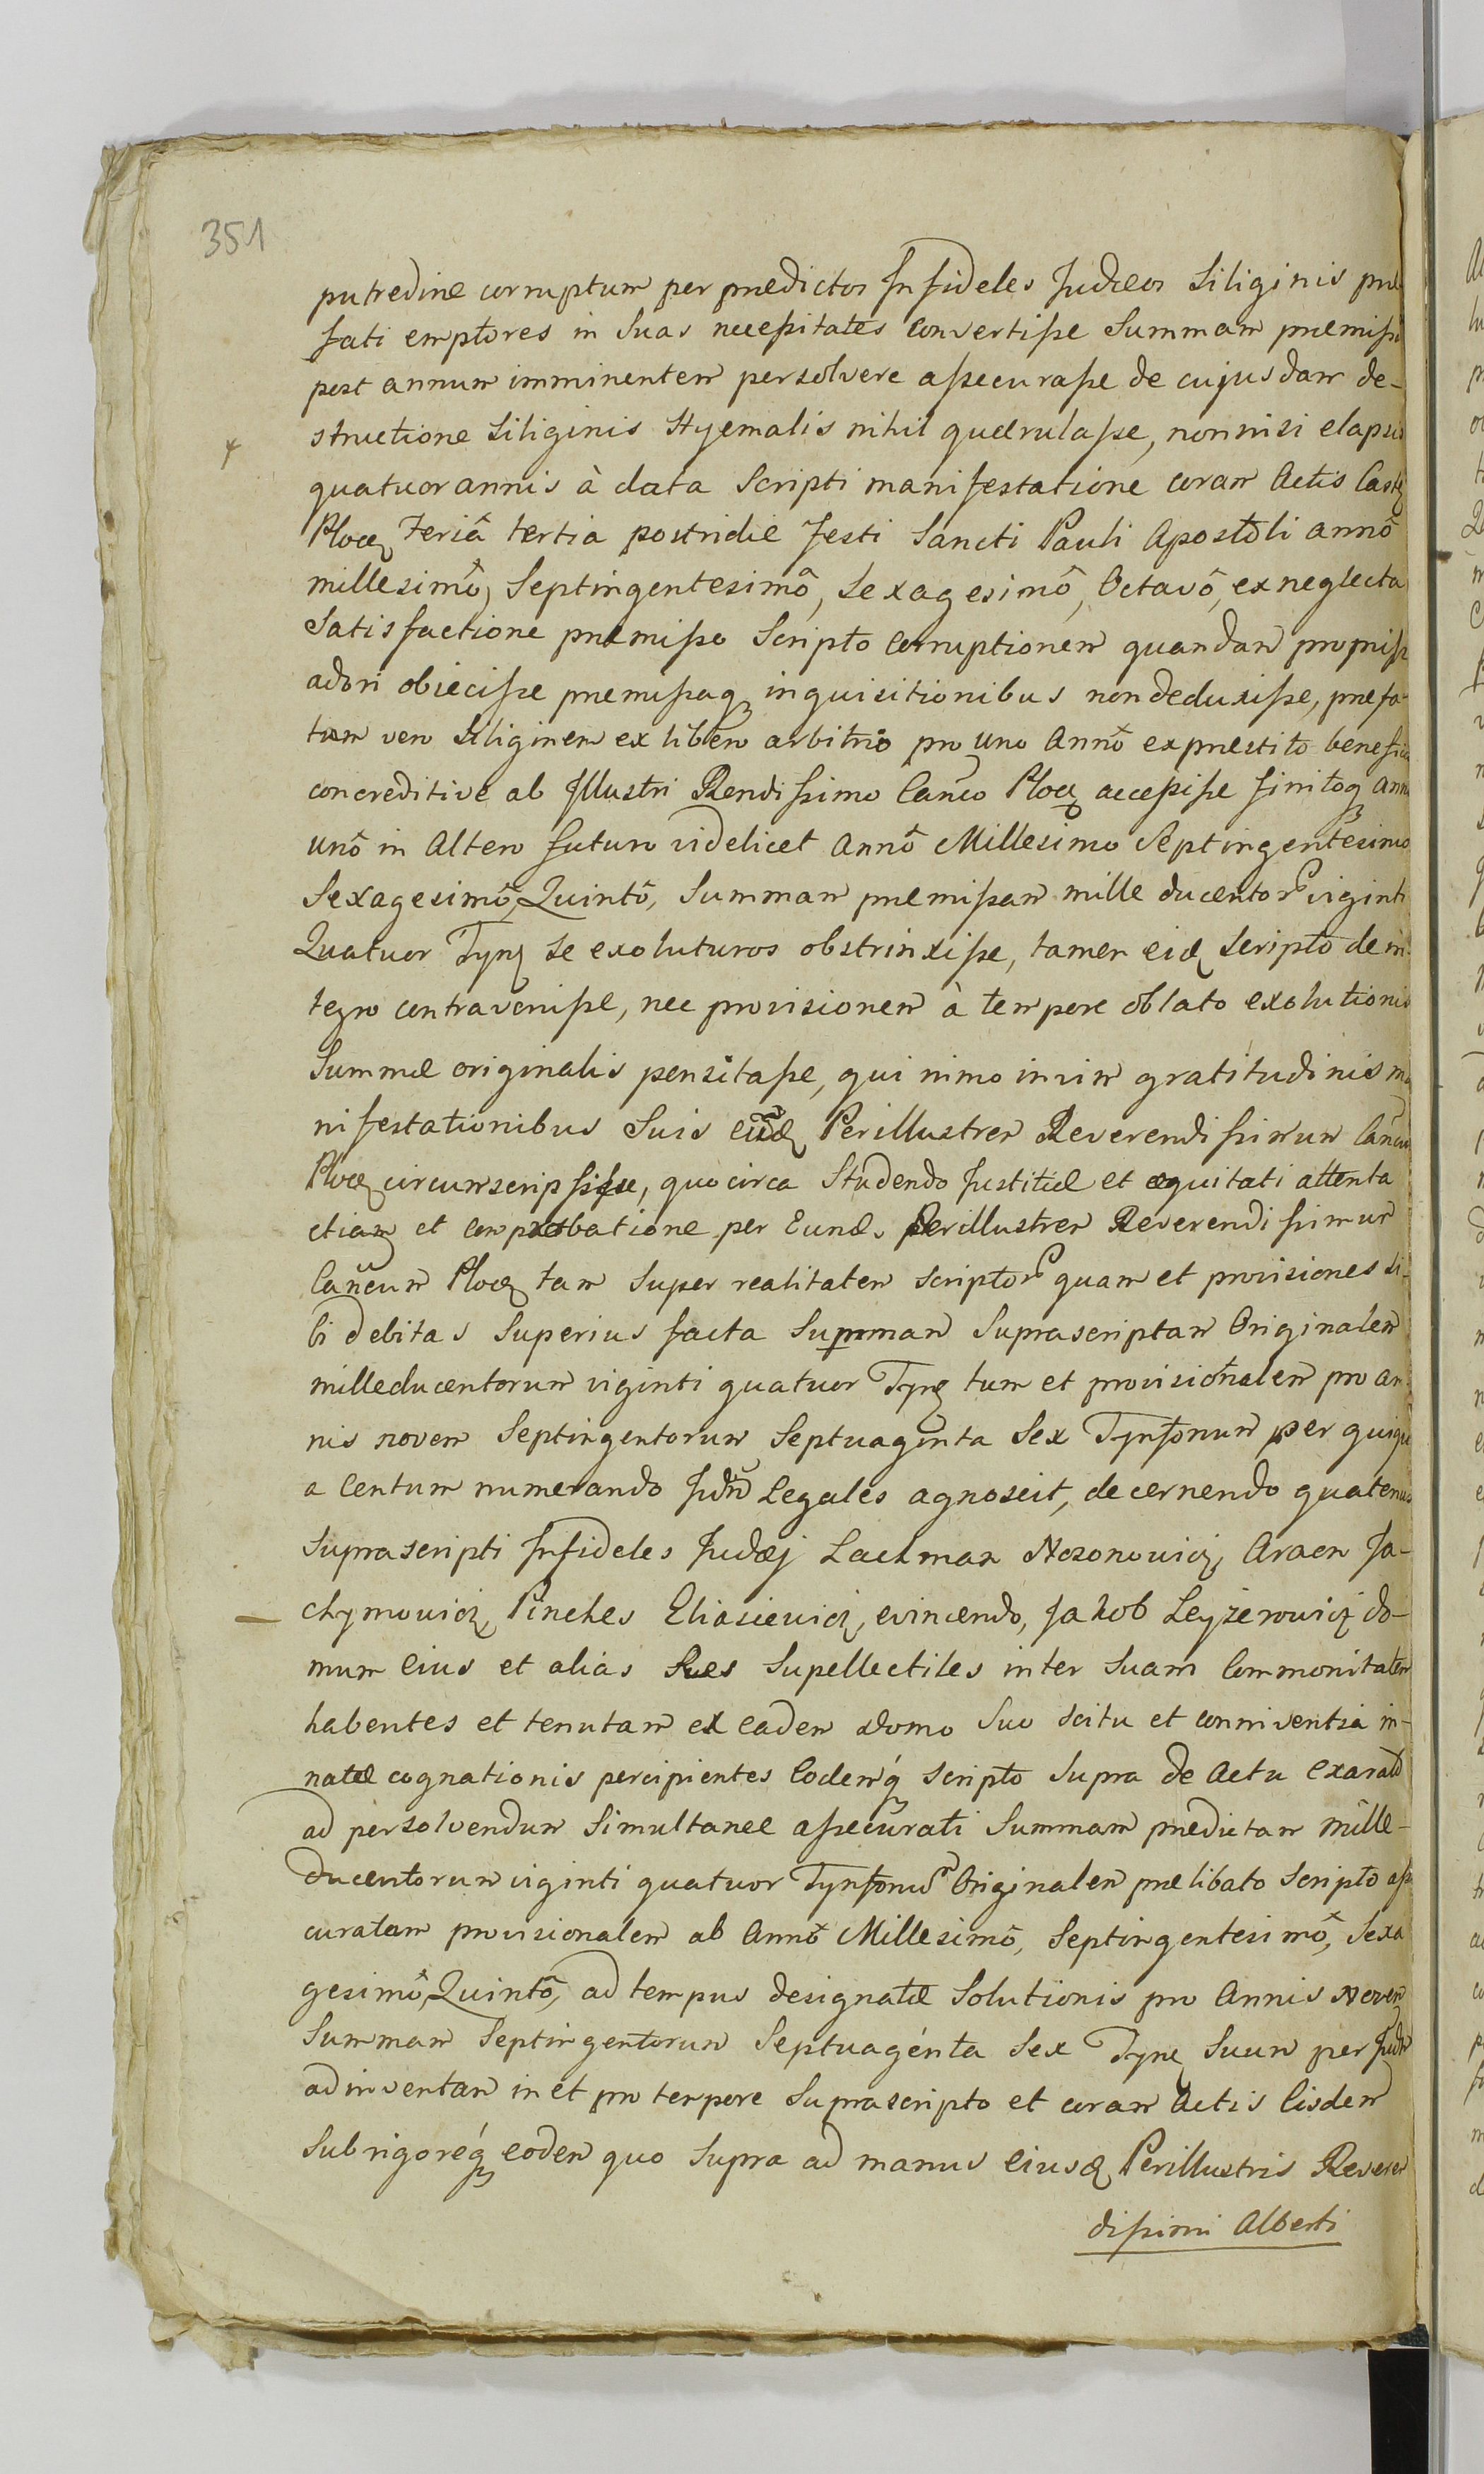 351
putredine corruptum per prædictos Infideles Judæos Siliginis præ
fati emptores in Suas necessitates convertisse Summam præmiss
post annum imminentem persolvere assecurasse de cujusdam de-
structione Siliginis Hyemalis nihil quærulasse, non nisi elapsis
quatuor annis à data Scripti manifestatione coram Actis
Ploc Feriâ tertia postridie Festi Sancti Pauli Apostoli annô
millesimô, Septingentesimô, Sexagesimô, Octavô, ex neglecta
Satisfactione præmisso Scripto corruptionem quandam
adori obiecisse præmissaq inquisitionibus non deduxisse, præfa-
tam vero Siliginem ex libero arbitrio pro uno Annô ex præstito benefici
concreditive ab Illustri Rendissimo Canco Ploc accepisse finitoq ann
unô in Altero futuro videlicet Annô Millesimo Septingentesimo
Sexagesimô, Quintô, Summam præmissam mille ducentor viginti
Quatuor Tynf se exoluturos obstrinxisse, tamen eid Scripto de in-
tegro contravenisse, nec provisionem à tempore oblato exolutionis
Summæ originalis pensitasse, qui nimo in vim gratitudinis ma
nifestationibus Suis eund Perillustrem Reverendissimum Cancum
Ploc circumscripsisse, quocirca Studendo Justitiæ et æquitati attenta
etiam et comprobatione per Eund Perillustrem Reverendissimum
Cancum Ploc tam Super realitatem scriptor quam et provisiones si-
bi debitas Superius facta Summam Suprascriptam Originalem
milleducentorum viginti quatuor Tynf tum et provisionalem pro an-
nis novem Septingentorum Septuaginta Sex Tynfonum per quiq
a Centum numerando Judm Legales agnoscit, decernendo quatenus
Suprascripti Infideles Judæj Lachman Nosonowicz, Araon Ja-
chymowicz, Pinches Eliasiewicz, evincendo, Jakob Leyzerowicz do-
mum Eius et alias Res Supellectiles inter Suam Commonitatem
habentes et tenutam ex eadem domo Suo Scitu et conniventia in-
natæ cognationis percipientes Eodemq́ Scripto Supra de Actu Exarato
ad persolvendum Simultanee assecurati Summam prædictam mille-
ducentorum viginti quatuor Tynfonu Originalem prælibato Scripto asse
curatam provisionalem ab Annô Millesimô, Septingentesimô, Sexa
gesimô, Quintô, ad tempus designatæ Solutionis pro Annis Novem
Summam Septingentorum Septuagenta Sex Tynf Suum per Judm
adinventam in et pro tempore Suprascripto et coram Actis Eisdem
Sub rigoreq́ eodem quo Supra ad manus eiusd Perillustris Reveren
dissimi Alberti